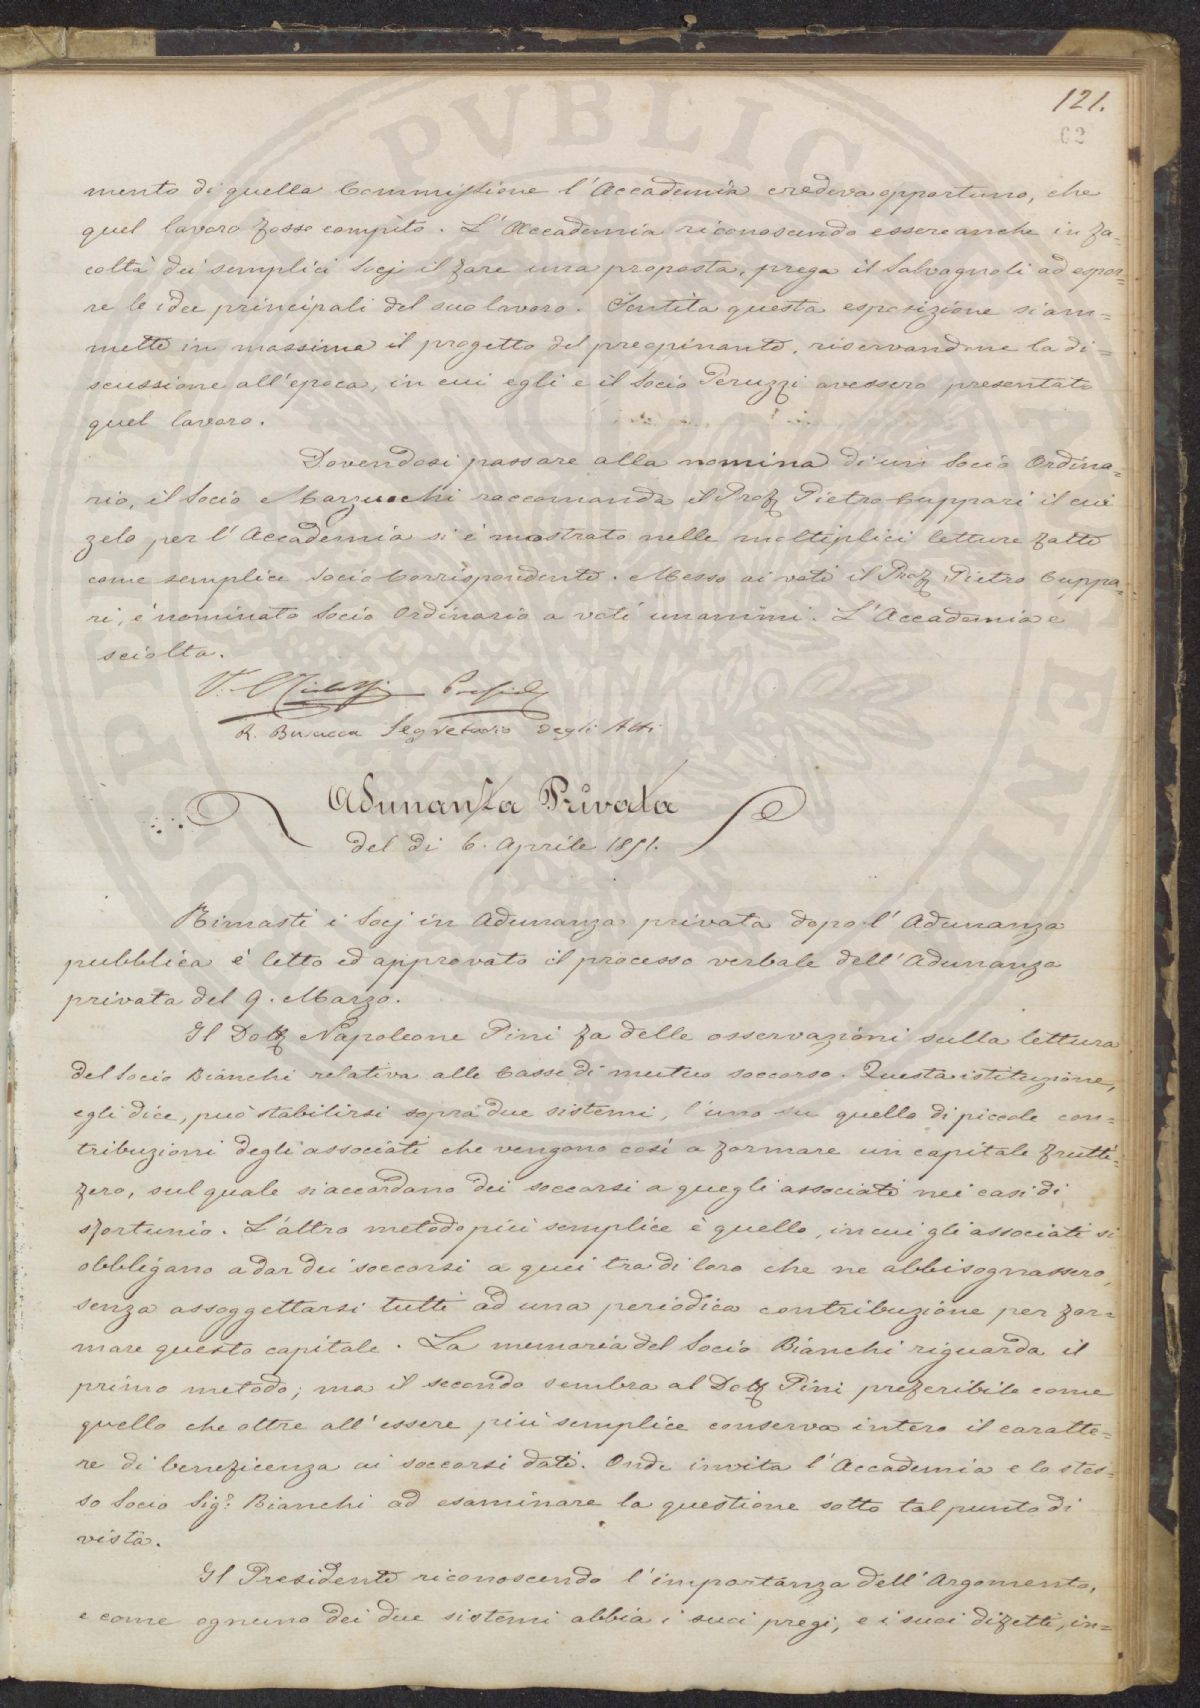 121.
62
mento di quella Commissione l'Accademia credeva opportuno, che
quel lavoro fosse compito. L'Accademia riconoscendo essere anche in fa-
coltà dei semplici Socj il fare una proposta, prega il Salvagnoli ad espor=
re le idee principali del suo lavoro. Sentita questa esposizione si am=
mette in massima il progetto del preopinante, riservandone la di=
scussione all'epoca, in cui egli e il Socio Peruzzi avessero presentato
quel lavoro.
Dovendosi passare alla nomina di un Socio Ordina=
rio, il Socio Marzucchi raccomanda il Prof Pietro Cuppari il cui
zelo per l'Accademia si è mostrato nelle moltiplici letture fatte
come semplice Socio Corrispondente. Messo ai voti il Prof Pietro Cuppa=
ri, è nominato Socio Ordinario a voti unanimi. L'Accademia è
sciolta.
R. Busacca Segretario degli Atti
Adunanza Privata
del dì 6. Aprile 1851.
Rimasti i Socj in Adunanza privata dopo l'Adunanza
pubblica è letto ed approvato il processo verbale dell'Adunanza
privata del 9. Marzo.
Il Dott Napoleone Pini fa delle osservazioni sulla lettura
del Socio Bianchi relativa alle Casse di mutuo soccorso. Questa istituzione,
egli dice, può stabilirsi sopra due sistemi, l'uno su quello di piccole con=
tribuzioni degli associati che vengono così a formare un capitale frutti=
fero, sul quale si accordano dei soccorsi a quegli associati nei casi di
sfortunio. L'altro metodo più semplice è quello, in cui gli associati si
obbligano a dar dei soccorsi a quei tra di loro che ne abbisognassero,
senza assoggettarsi tutti ad una periodica contribuzione per for=
mare questo capitale. La memoria del Socio Bianchi riguarda il
primo metodo; ma il secondo sembra al Dott Pini preferibile come
quello che oltre all'essere più semplice conserva intero il caratte=
re di beneficenza ai soccorsi dati. Onde invita l'Accademia e lo stes=
so Socio Sigr. Bianchi ad esaminare la questione sotto tal punto di
vista.
Il Presidente riconoscendo l'importanza dell'Argomento,
e come ognuno dei due sistemi abbia i suoi pregi, e i suoi difetti, in=